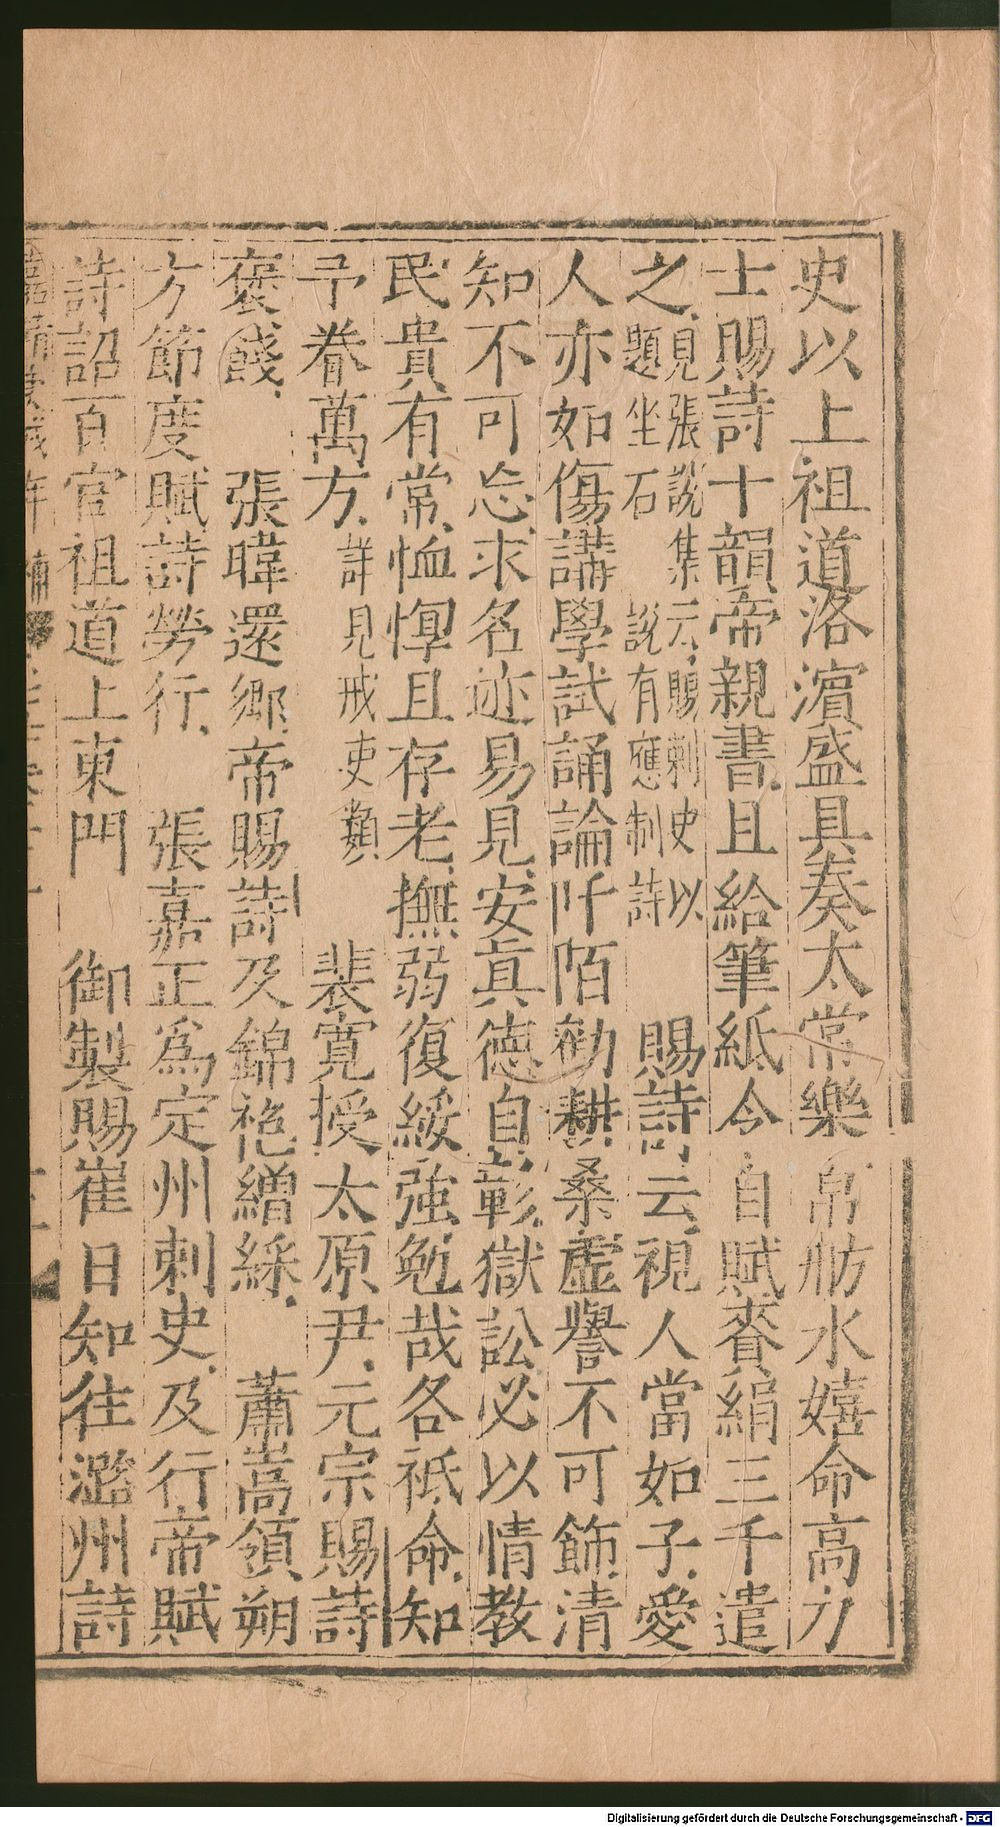 史以上祖道洛濵盛具奏太常樂帛舫水嬉命高力
士賜詩十韻帝親書且給筆紙令自賦賚絹三千遣
之見張說集云賜刺史以題坐石說有應制詩 賜詩云視人當如子愛
人亦如傷講學試誦論阡陌勸耕桑虛譽不可飾清
知不可忘求名迹易見安真德自彰獄訟必以情教
民貴有常恤惸且存老撫弱復綏強勉哉各祗命知
予眷萬方詳見戒吏類 裴寛授太原尹元宗賜詩
褒餞 張暐還鄉帝賜詩及錦袍繒綵 蕭嵩領朔
方節度賦詩勞行 張嘉正為定州刺史及行帝賦
詩詔百官祖道上東門 御製賜崔日知往潞州詩
嘉靖 年補
Digitalisierung gefördert durch die Deutsche Forschungsgemeinschaft - DFG